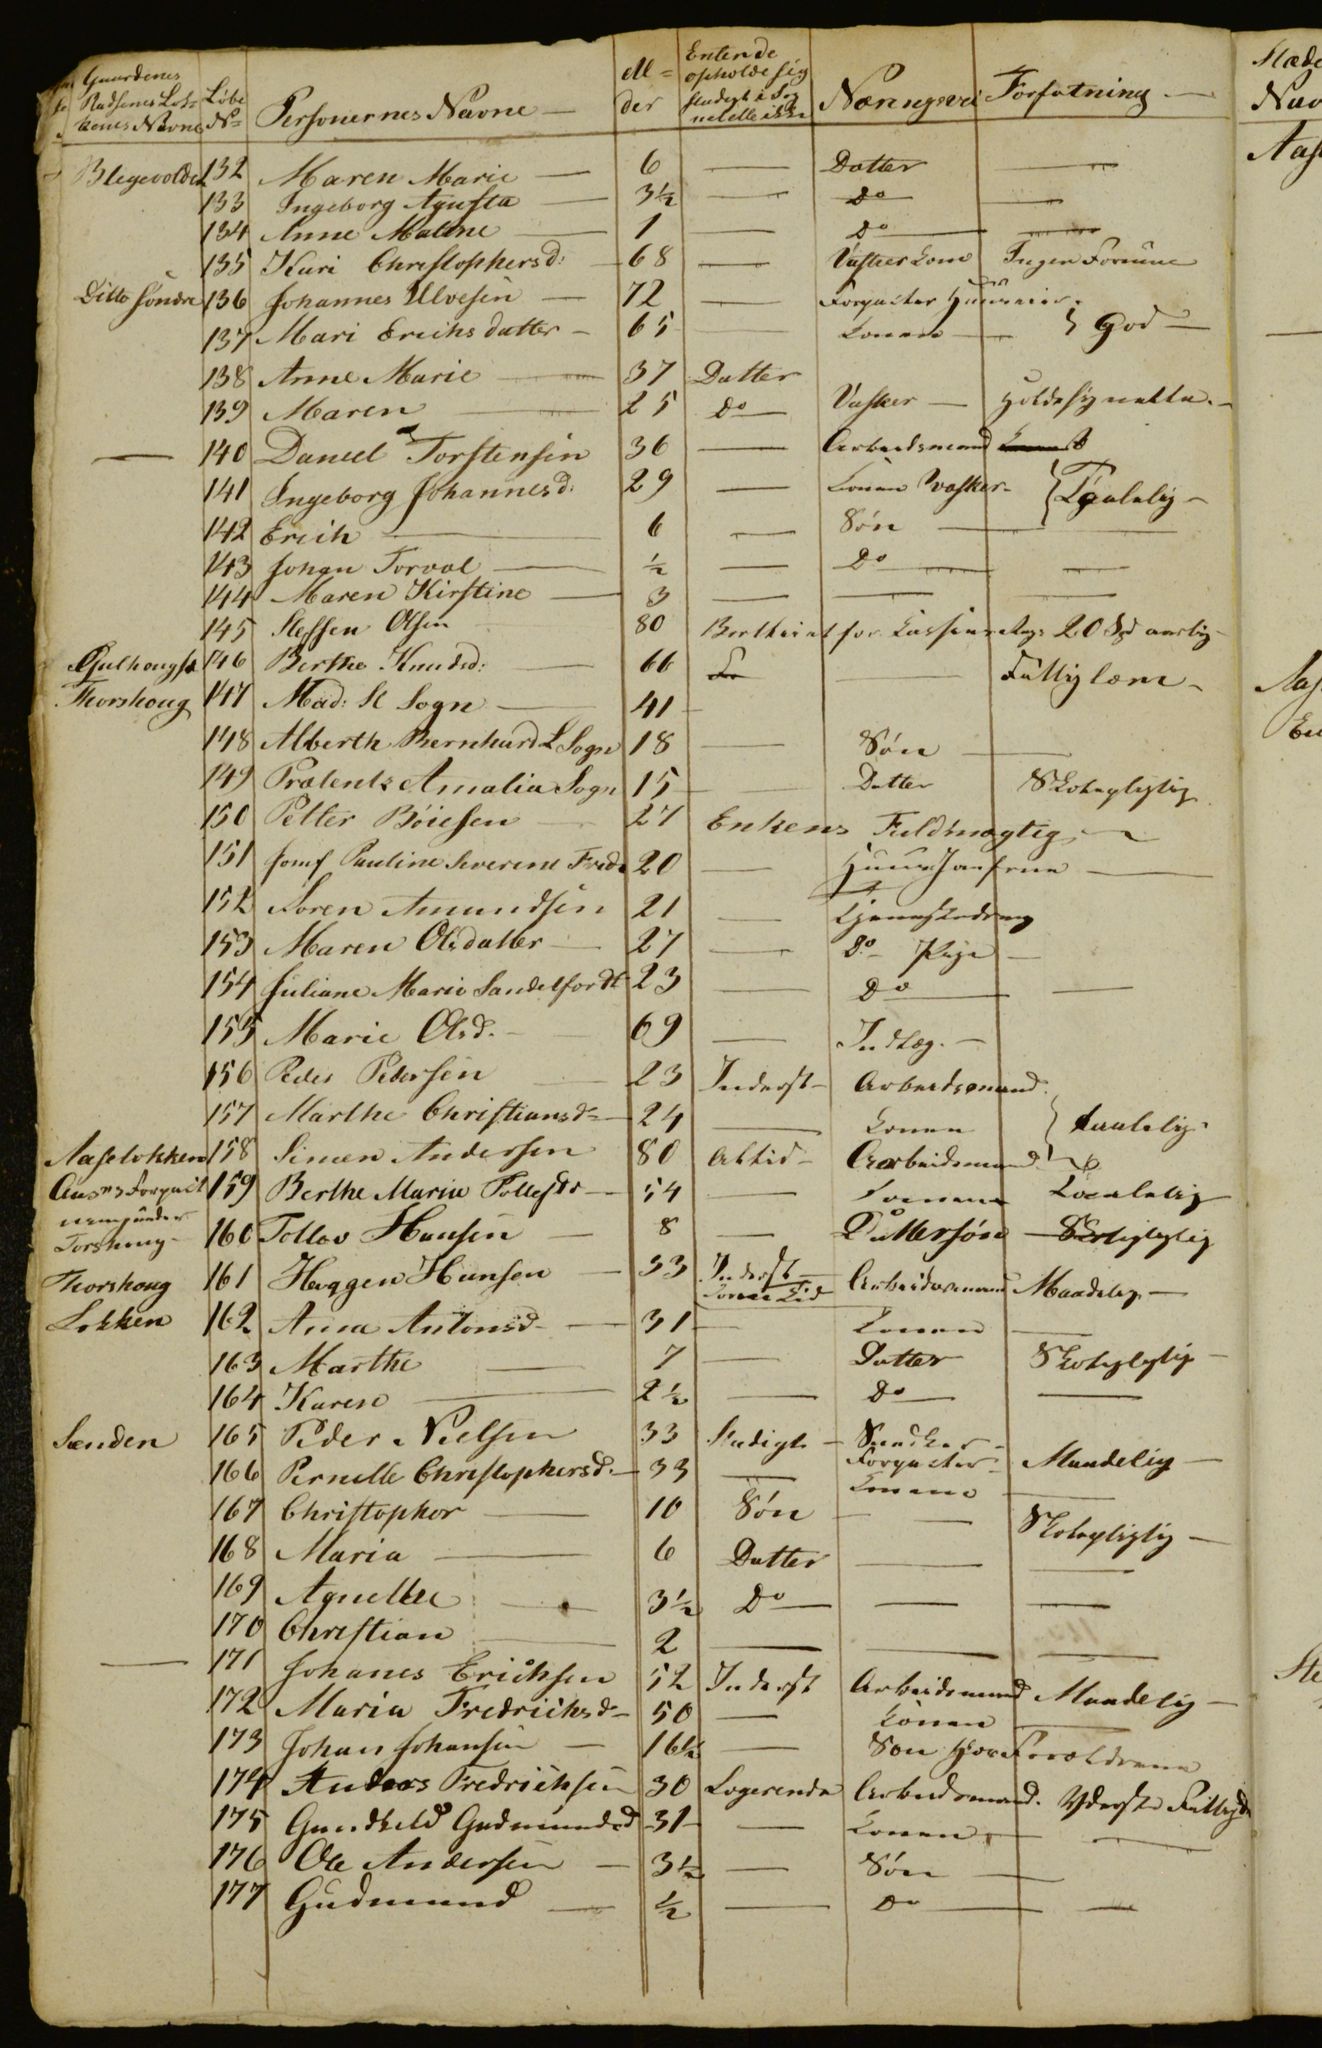 Gaardenes Pladsenes Løkkenes Navne | Løbe No | Personernes Navne | Alder | Enten de opholde sig stadigt i Sognet elle ikke | Næringsvei | Forfatning
Blegevolden 132 Maren Marie — 6 — Datter —
133 Ingeborg Agusta — 3½ — Do —
134 Anne Maline — 1 — Do —
135 Kari Christophersd: — 68 — Vasker kone Ingen Formue
Ditto søndre 136 Johannes Ulvesen — 72 — Forpagter Huuseier
137 Mari Erichsdatter — 65 — Konen — } God —
138 Anne Marie — 37 Datter
139 Maren — 25 Do — Vasker — Holde sig nætte. —
— 140 Daniel Torstensen 36 — Arbeidsmand
141 Ingeborg Johannesd: 29 — Konen Vasker — } Taalelig —
142 Erich — 6 — Søn —
143 Johan Torval — ½ — Do —
144 Maren Kirstine — 3 — — —
145 Steffen Olsen 80 20 Spd aarlig —
146 Berthe Knudsd: — 66 — Fattiglem —
Thorshoug 147 Mad: Sl Sogn — 41 —
148 Alberth Bernhard L Sogn 18 — Søn —
149 Amalia Sogn 15 — Datter Skolepligtig
150 Petter Böiesen — 27 Enkens Fuldmægtig —
151 Jomf Pauline Severine 20 — Huus Jomfrue —
152 Soren Amundsen 21 — Tjenestedreng
153 Maren Olsdatter — 27 — Do Pige —
154 Juliane Marie Sandelfordt 23 — Do —
155 Marie Olsd. — 69 — Indlæg. —
156 Peder Pedersen — 23 Inderst — Arbeidsmand
157 Marthe Christiansd — 24 — Konen } taalelig
Aaseløkken 158 Simen Andersen 80 Altid — Arbeidsmand
159 Berthe Marie Tollefsdr — 54 — Konen Taalelig
Torshoug — 160 Tollev Hansen — 8 — Dattersøn — Skolepligtig
Thorshoug 161 Haagen Hansen — 33 Inderst — Arbeidsmand Maadelig —
Løkken 162 Anna Antonsd — 31 — Konen —
163 Marthe — 7 — Datter Skolepligtig —
164 Karen — 2½ — Do —
Sanden 165 Peder Nielsen 33 Stadigt — Snedker —
166 Pernille Christophersd. — 33 — Forpagter — Maadelig —
Konen —
167 Christopher — 10 Søn — — Skolepligtig —
168 Maria — 6 Datter — —
169 Agnethe — 3½ Do — —
170 Christian — 2 — — —
— 171 Johanes Erichsen 52 Inderst Arbeidsmand Maadelig —
172 Maria Fredrichsd — 50 — Konen —
173 Johan Johansen — 16½ — Søn Hos Foreldrene
174 Anders Fredrichsen 30 Logerende Arbeidsmand. Yderste Fattigd
175 Gundhild Gudmundsd 31 — — Konen — —
176 Ole Andersen — 3½ — Søn —
177 Gudmund — ½ — Do — —